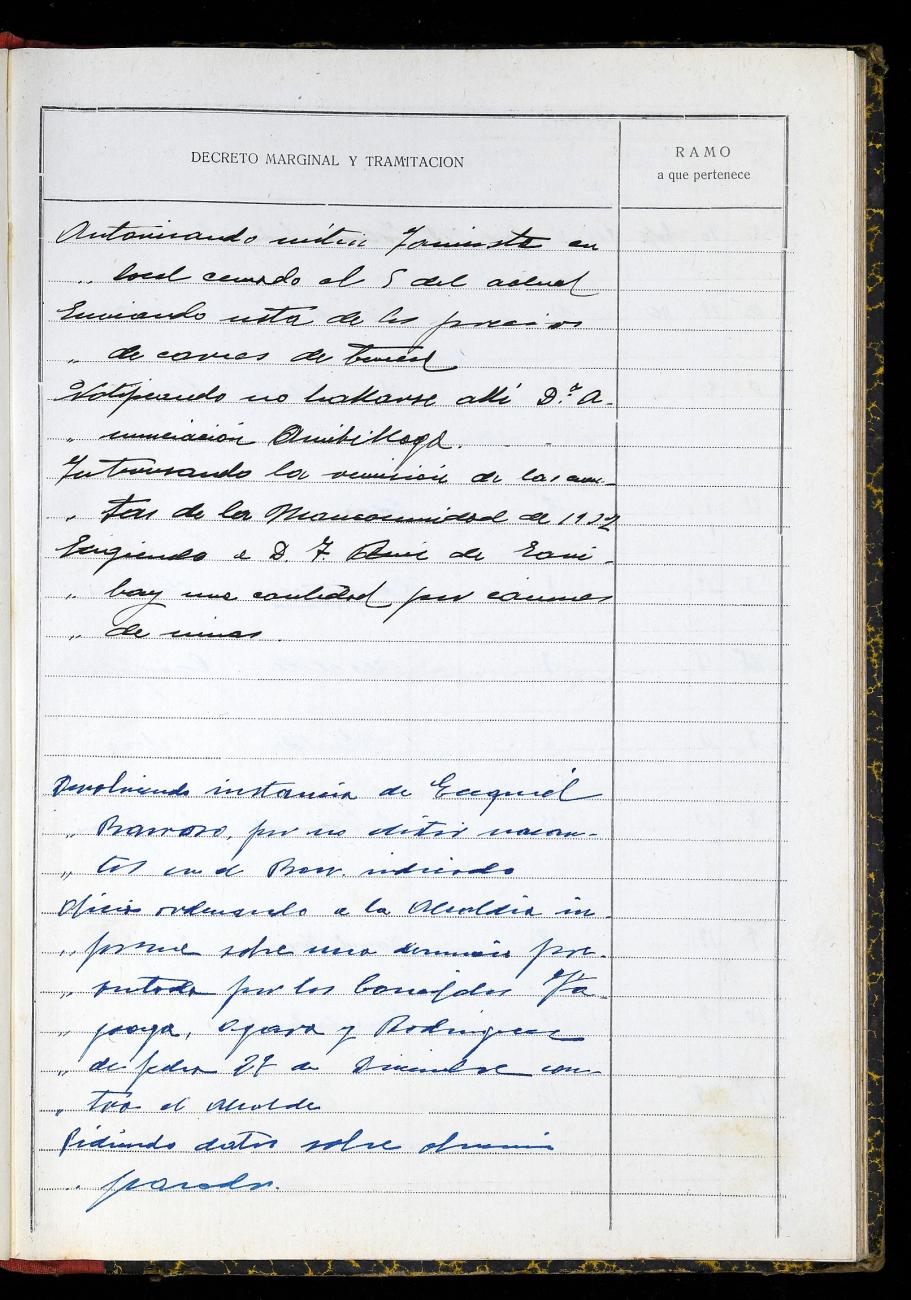 DECRETO MARGINAL Y TRAMITACION
RAMO
a que pertenece
Autorizando mitin Jaimista en
" local cerrado el 5 del actual
Enviando nota de los precios
" de carnes de
Notificando no hallarse allí D.ª A-
" nunciación
Interesando la remisión de las cuen-
" tas de la Mancomunidad de 1932
Exigiendo a D. F. Ruiz de
" una cantidad por canones
" de minas.
Devolviendo instancia de Ezequiel
" Barroso, por no existir vacan-
" tes en el indicado
Oficio ordenando a la Alcaldia in-
" forme sobre una denuncia pre-
" sentada por los Concejales
" y Rodriguez
" de fecha 27 de Diciembre con-
" tra el Alcalde
Pidiendo datos sobre obrerin
" parado.